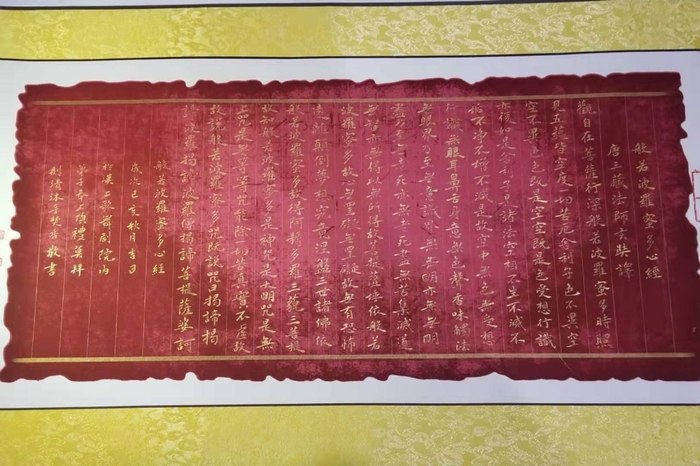 般若波羅蜜多心經
唐三藏法師玄奘譯
觀自在菩薩行深般若波羅蜜多時照
見五蘊皆空度一切苦厄舍利子色不異空
空不異色色既是空空既是色受想行識
亦復如是舍利子是諸法空想不生不滅不
垢不淨不增不減是故空中無色無受想
行識無眼耳鼻舌身意無色聲香味觸法
無眼界乃至無意識界無無明亦無無明
盡乃至無老死亦無老死盡無苦集滅道
無智亦無得以無所得故菩提薩埵依般若
波羅蜜多故心無罣礙無罣礙故無有恐怖
遠離顛倒夢想究竟涅盤三世諸佛依
般若波羅蜜多故得阿耨多羅三藐三菩提
故知般若波羅蜜多是大神咒是大明咒是無
上咒是無等等咒能除一切苦真實不虛故
故說般若波羅蜜多咒既說咒曰揭諦揭
諦波羅揭諦波羅僧揭諦菩提薩婆訶
般若波羅蜜多心經
歲次己亥秋月吉日
於漢歌舞劇院內
敬書